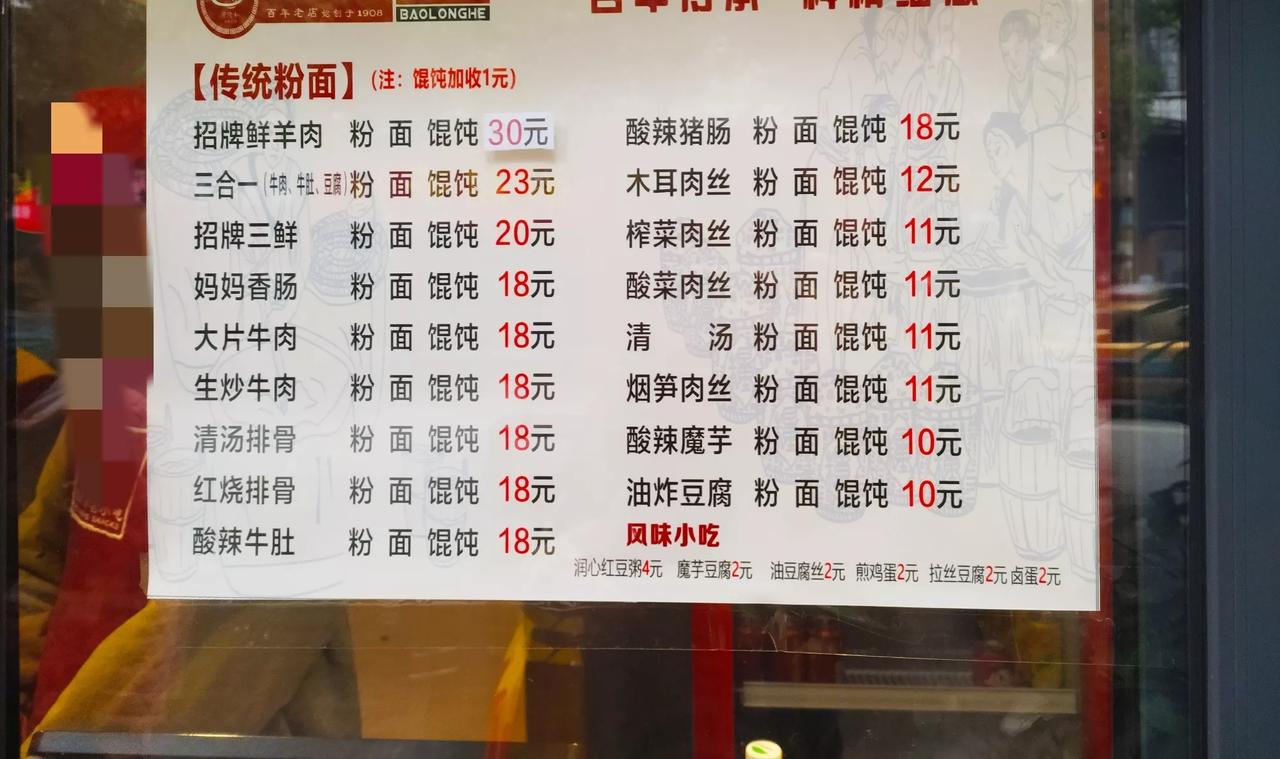 百年老店始创于1908
BAOLONGHE
【传统粉面】(注：馄饨加收1元)
招牌鲜羊肉 粉 面 馄饨 30元
三合一(牛肉、牛肚、豆腐) 粉 面 馄饨 23元
招牌三鲜 粉 面 馄饨 20元
妈妈香肠 粉 面 馄饨 18元
大片牛肉 粉 面 馄饨 18元
生炒牛肉 粉 面 馄饨 18元
清汤排骨 粉 面 馄饨 18元
红烧排骨 粉 面 馄饨 18元
酸辣牛肚 粉 面 馄饨 18元
酸辣猪肠 粉 面 馄饨 18元
木耳肉丝 粉 面 馄饨 12元
榨菜肉丝 粉 面 馄饨 11元
酸菜肉丝 粉 面 馄饨 11元
清 汤 粉 面 馄饨 11元
烟笋肉丝 粉 面 馄饨 11元
酸辣魔芋 粉 面 馄饨 10元
油炸豆腐 粉 面 馄饨 10元
风味小吃
润心红豆粥4元 魔芋豆腐2元 油豆腐丝2元 煎鸡蛋2元 拉丝豆腐2元 卤蛋2元